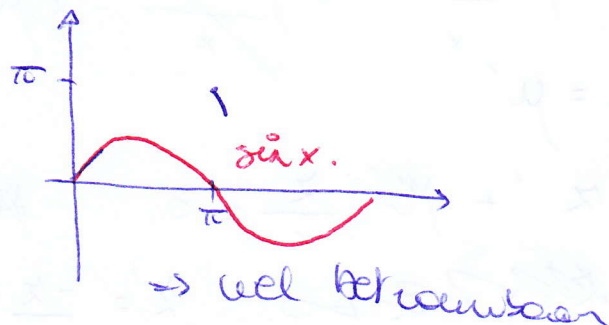 π
sin x.
π
=> wel betrouwbaar